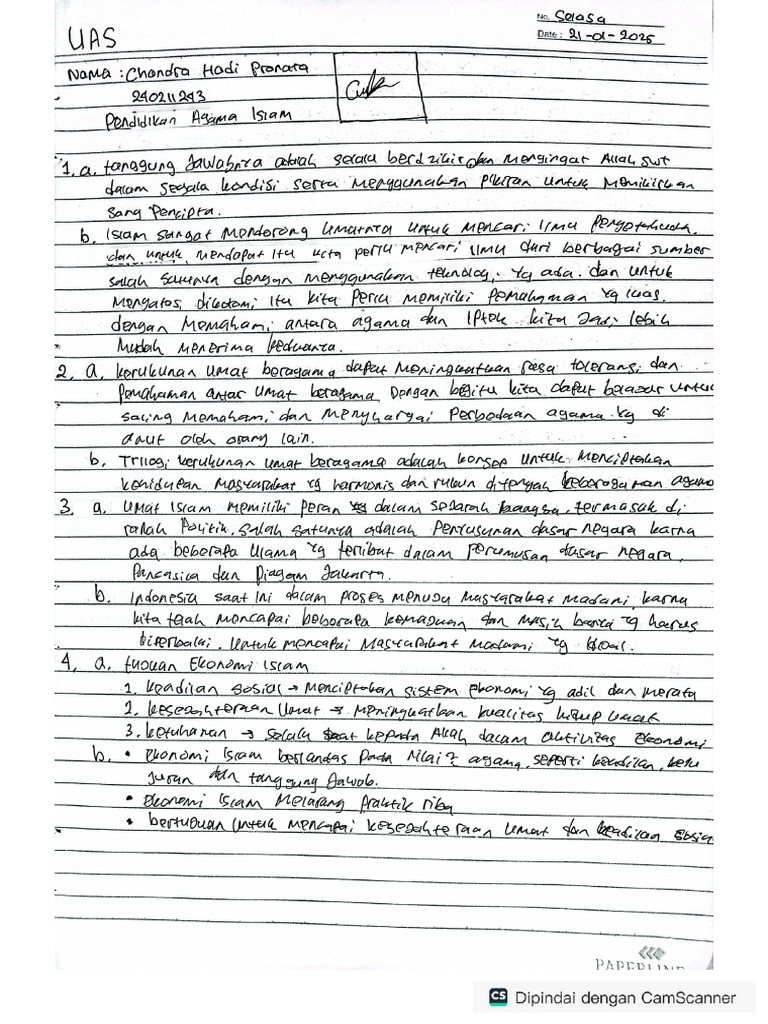 UAS
No. Selasa
Date: 21-01-2025
Nama : Chandra Hadi Pranata
240211243
Pendidikan Agama Islam
1. a. tanggung Jawabnya adalah selalu berdzikir dan mengingat Allah swt
dalam segala kondisi serta menggunakan pikiran untuk memikirkan
sang Pencipta.
b. Islam sangat mendorong umatnya untuk mencari ilmu pengetahuan.
dan untuk mendapat itu kita perlu mencari ilmu dari berbagai sumber
salah satunya dengan menggunakan teknologi yg ada. dan untuk
mengatasi dikotomi itu kita perlu memiliki pemahaman yg luas.
dengan memahami antara agama dan Iptek kita jadi lebih
mudah menerima keduanya.
2. a. kerukunan umat beragama dapat meningkatkan rasa toleransi dan
pemahaman antar umat beragama. Dengan begitu kita dapat belajar untuk
saling memahami dan menghargai perbedaan agama yg di
anut oleh orang lain.
b. Trilogi kerukunan umat beragama adalah konsep untuk menciptakan
kehidupan masyarakat yg harmonis dan rukun ditengah keberagaman agama
3. a. Umat Islam memiliki peran dalam sejarah bangsa, termasuk di
ranah Politik. salah satunya adalah penyusunan dasar negara karna
ada beberapa ulama yg terlibat dalam perumusan dasar negara,
Pancasila dan Piagam Jakarta.
b. Indonesia saat ini dalam proses menuju masyarakat madani, karna
kita telah mencapai beberapa kemajuan dan masih banyak yg harus
diperbaiki. Untuk mencapai masyarakat madani yg ideal.
4. a. tujuan Ekonomi Islam
1. keadilan sosial → menciptakan sistem ekonomi yg adil dan merata
2. kesejahteraan umat → meningkatkan kualitas hidup umat
3. ketuhanan → selalu taat kepada Allah dalam aktivitas Ekonomi
b. • Ekonomi Islam berlandas pada nilai² agama, seperti keadilan, keju
juran dan tanggung Jawab.
• Ekonomi Islam melarang praktik riba
• bertujuan untuk mencapai kesejahteraan umat dan keadilan sosia
PAPERLINE
CS Dipindai dengan CamScanner